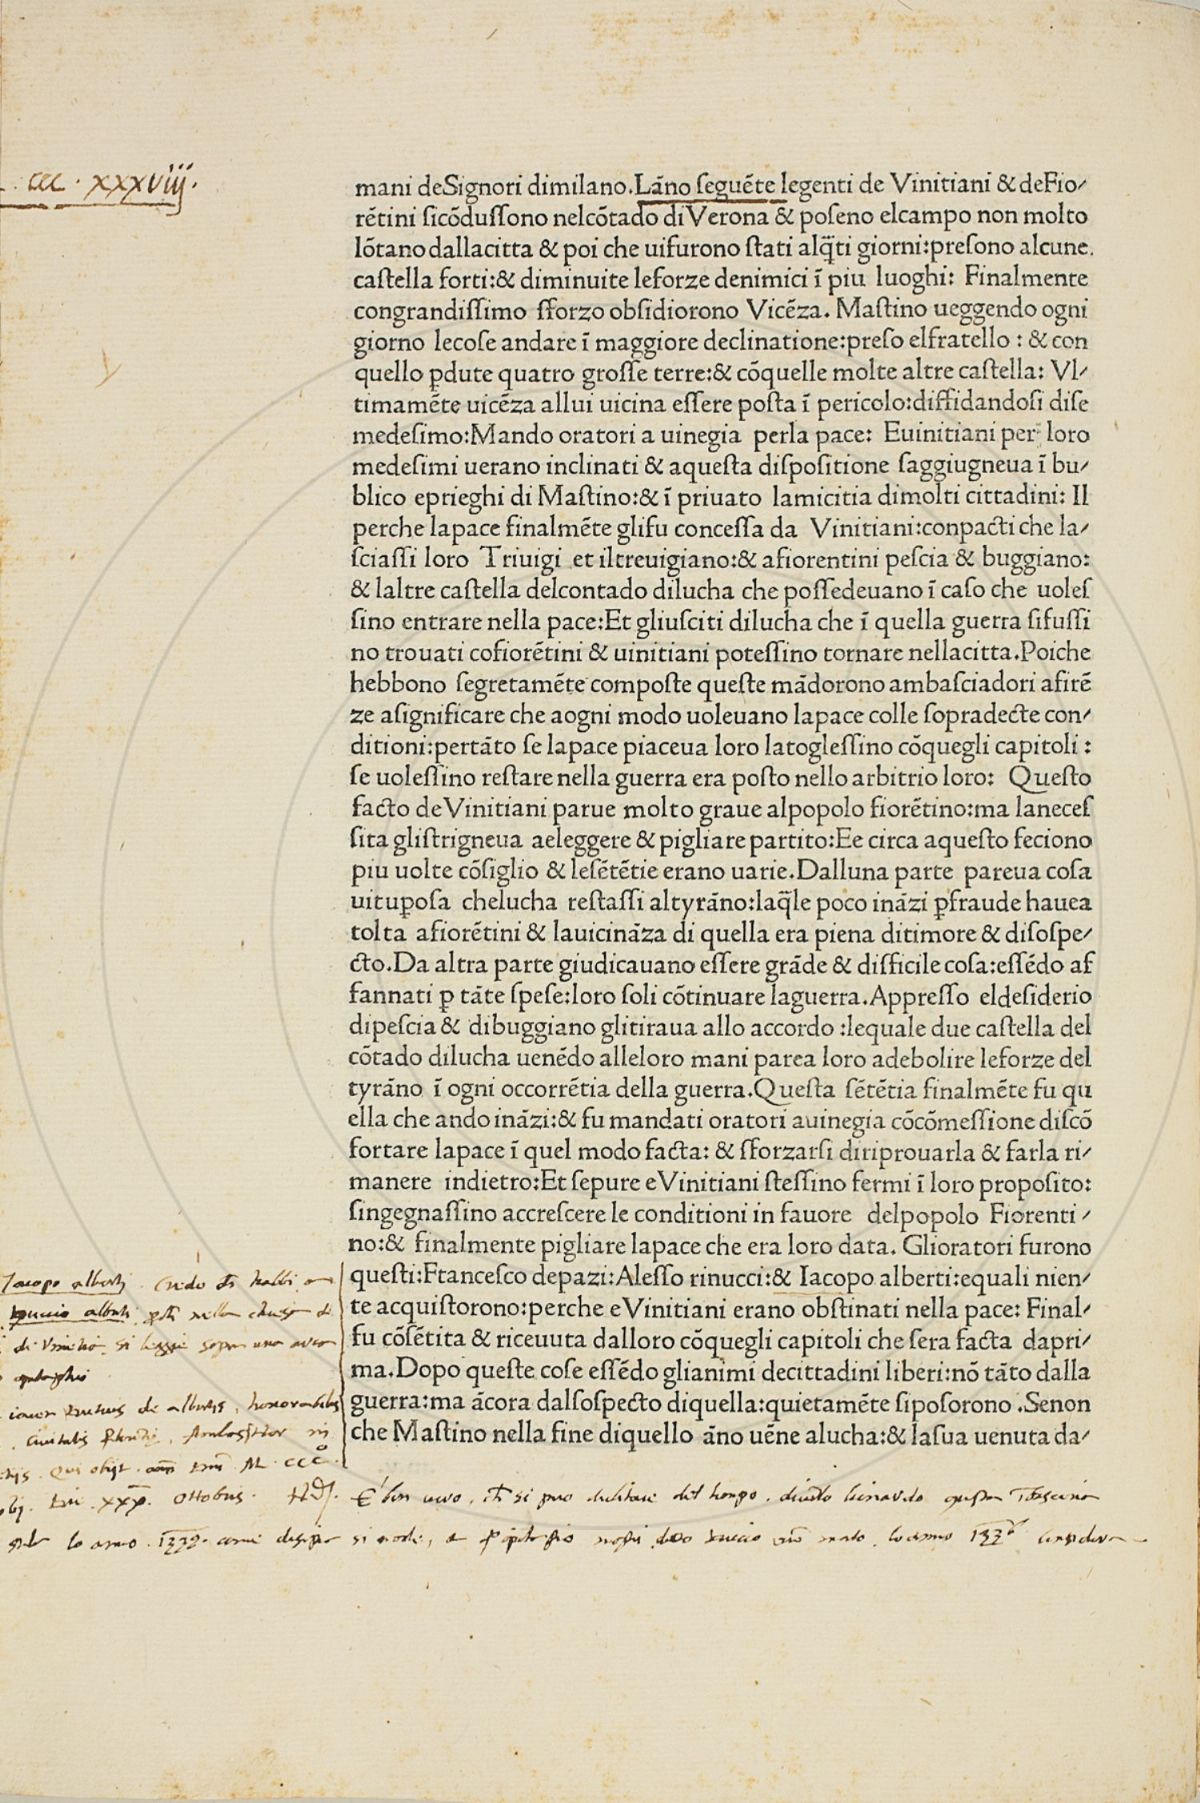 . CCC . XXXVIIJ .
mani deSignori dimilano.Lãno ſeguẽte legenti de Vinitiani & deFio⸗
rẽtini ſicõduſſono nelcõtado di Verona & poſeno elcampo non molto
lõtano dallacitta & poi che uifurono ſtati alq̃ti giorni:preſono alcune
caſtella forti:& diminuite leforze denimici ĩ piu luoghi: Finalmente
congrandiſſimo sforzo obſidiorono Vicẽza. Maſtino ueggendo ogni
giorno lecoſe andare ĩ maggiore declinatione:preſo elfratello : & con
quello ꝑdute quatro groſſe terre:& cõquelle molte altre caſtella: Vl⸗
timamẽte uicẽza allui uicina eſſere poſta ĩ pericolo:diffidandoſi diſe
medeſimo:Mando oratori a uinegia perla pace: Euinitiani per loro
medeſimi uerano inclinati & aqueſta diſpoſitione ſaggiugneua ĩ bu⸗
blico eprieghi di Maſtino:& ĩ priuato lamicitia dimolti cittadini: Il
perche lapace finalmẽte glifu conceſſa da Vinitiani:conpacti che la⸗
ſciaſſi loro Triuigi et iltreuigiano:& afiorentini peſcia & buggiano:
& laltre caſtella delcontado dilucha che poſſedeuano ĩ caſo che uoleſ
ſino entrare nella pace:Et gliuſciti dilucha che ĩ quella guerra ſifuſſi
no trouati cofiorẽtini & uinitiani poteſſino tornare nellacitta.Poiche
hebbono ſegretamẽte compoſte queſte mãdorono ambaſciadori afirẽ
ze aſignificare che aogni modo uoleuano lapace colle ſopradecte con⸗
ditioni:pertãto ſe lapace piaceua loro latogleſſino cõquegli capitoli :
ſe uoleſſino reſtare nella guerra era poſto nello arbitrio loro: Queſto
facto deVinitiani parue molto graue alpopolo fiorẽtino:ma laneceſ
ſita gliſtrigneua aeleggere & pigliare partito:Ee circa aqueſto feciono
piu uolte cõſiglio & leſẽtẽtie erano uarie.Dalluna parte pareua coſa
uituꝑoſa chelucha reſtaſſi altyrãno:laq̃le poco inãzi ꝑfraude hauea
tolta afiorẽtini & lauicinãza di quella era piena ditimore & diſoſpe⸗
cto.Da altra parte giudicauano eſſere grãde & difficile coſa:eſſẽdo aſ
fannati ꝑ tãte ſpeſe:loro ſoli cõtinuare laguerra.Appreſſo eldeſiderio
dipeſcia & dibuggiano glitiraua allo accordo :lequale due caſtella del
cõtado dilucha uenẽdo alleloro mani parea loro adebolire leforze del
tyrãno ĩ ogni occorrẽtia della guerra.Queſta ſẽtẽtia finalmẽte fu qu
ella che ando inãzi:& fu mandati oratori auinegia cõcõmeſſione diſcõ
fortare lapace ĩ quel modo facta: & sforzarſi diriprouarla & farla ri⸗
manere indietro:Et ſepure eVinitiani ſteſſino fermi ĩ loro propoſito:
ſingegnaſſino accreſcere le conditioni in fauore delpopolo Fiorenti⸗
no:& finalmente pigliare lapace che era loro data. Glioratori furono
queſti:Franceſco depazi:Aleſſo rinucci:& Iacopo alberti:equali nien⸗
te acquiſtorono:perche eVinitiani erano obſtinati nella pace: Final⸗
fu cõſẽtita & riceuuta dalloro cõquegli capitoli che ſera facta dapri⸗
ma.Dopo queſte coſe eſſẽdo glianimi decittadini liberi:nõ tãto dalla
guerra:ma ãcora dalſoſpecto diquella:quietamẽte ſipoſorono .Senon
che Maſtino nella fine diquello ãno uẽne alucha:& laſua uenuta da⸗
Iacopo alberti . Credo
alberti nella
si legge sopra una
de albertis, honorabilis
civitatis
Qui obijt M . CCC .
XXX . Ottobris
lo anno